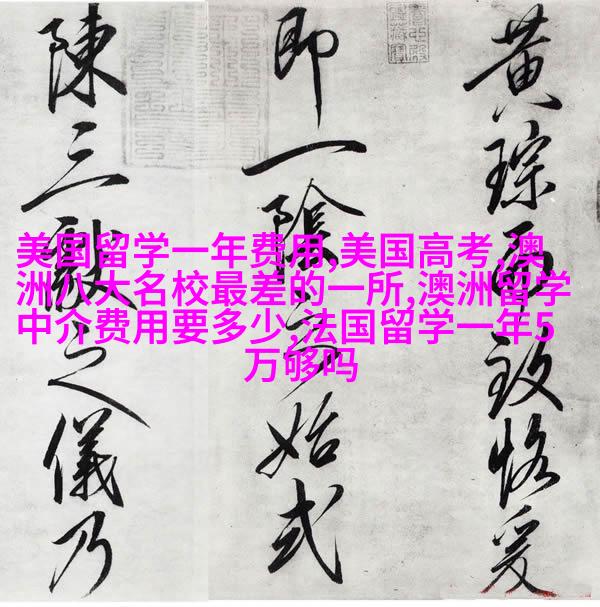 黄琮而致恪爰
即一陰始式
陳三獻之儀乃
美国留学一年费用,美国高考,澳
洲八大名校最差的一所,澳洲留学
中介费用要多少,法国留学一年5
万够吗